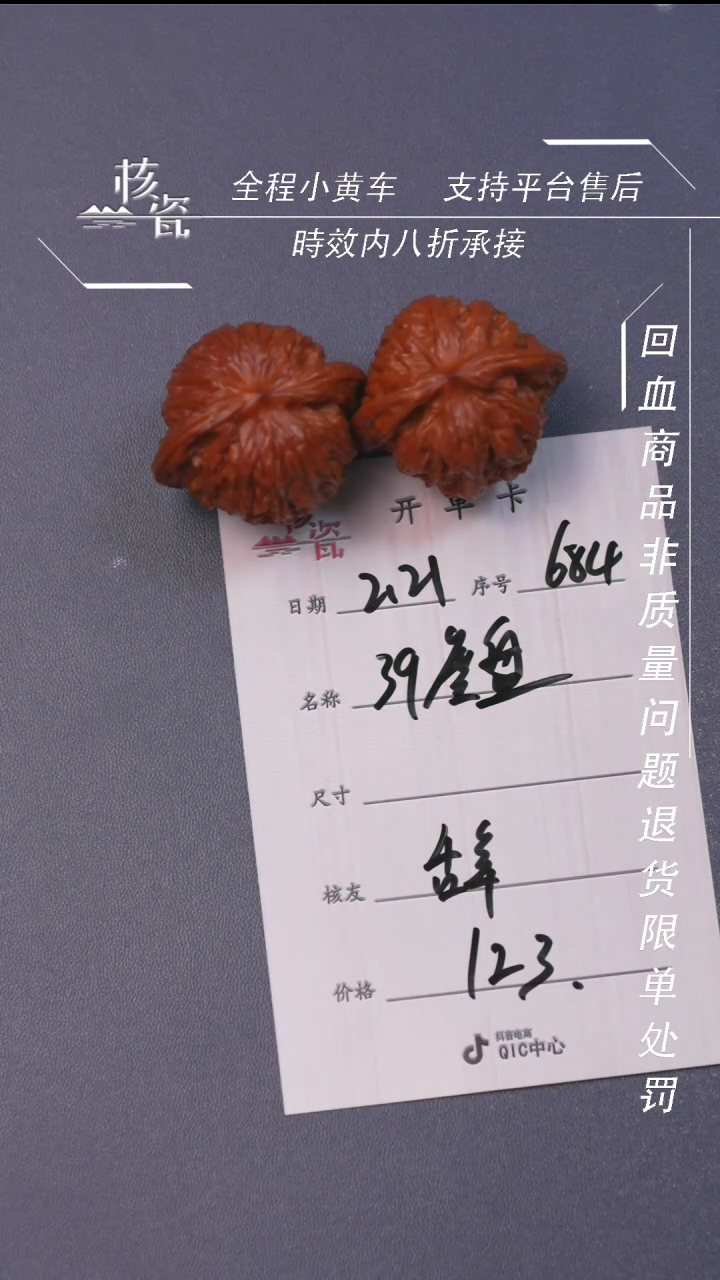 核瓷
全程小黄车 支持平台售后
時效内八折承接
回血商品非质量问题退货限单处罚
核瓷
开单卡
日期 2.21 序号 684
名称 39 盘
尺寸
核友 辞
价格 123.
抖音电商
QIC中心